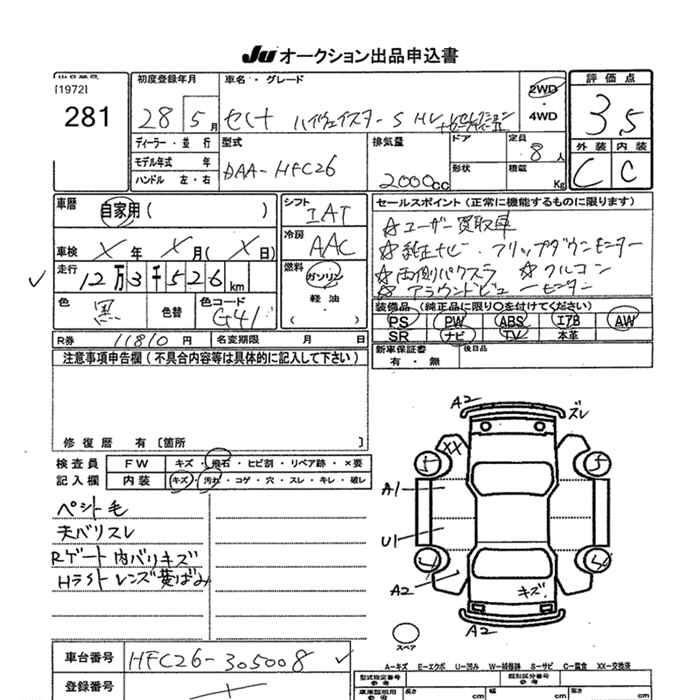 Ju オークション出品申込書
出品番号 初度登録年月 車名・グレード 評価点
[1972]
281
28 5月 セレナ ハイウェイスター S HV Vセレクション
2WD
4WD
3.5
ディーラー・並行 型式 排気量 ドア 定員 外装 内装
モデル年式 年 DAA-HFC26 2000cc 8人 C C
ハンドル 左・右 形状 積載 Kg
車歴 自家用 ( ) シフト IAT セールスポイント (正常に機能するものに限ります)
☆ユーザー買取車
冷房 AAC ☆純正ナビ・フリップダウンモニター
車検 X年 X月 (X日)
走行 12万3千526km 燃料 ガソリン ☆両側パワスラ ☆クルコン
軽油 ☆アラウンドビューモニター
( )
色 黒 色替 色コード G41 装備品 (純正品に限り○を付けてください)
PS PW ABS エアB AW
SR ナビ TV 本革
R券 11810円 名変期限 月 日 新車保証書 後日品
有・無
注意事項申告欄 (不具合内容等は具体的に記入して下さい)
修復歴 有 [箇所 ]
検査員 FW キズ・飛石・ヒビ割・リペア跡・×要
記入欄 内装 キズ・汚れ・コゲ・穴・スレ・キレ・破レ
ペット毛
天バリスレ
Rゲート内バリキズ
Hライトレンズ黄ばみ
A2 ズレ
XX
5 5
A1
U1
A2 キズ
A2
スペア
車台番号 HFC26-305008
A-キズ E-エクボ U-凹み W-補修跡 S-サビ C-腐食 XX-交換済
型式指定番号 参考 類別区分番号 参考
登録番号 車庫証明用 参考 長さ cm 幅 cm 高さ cm